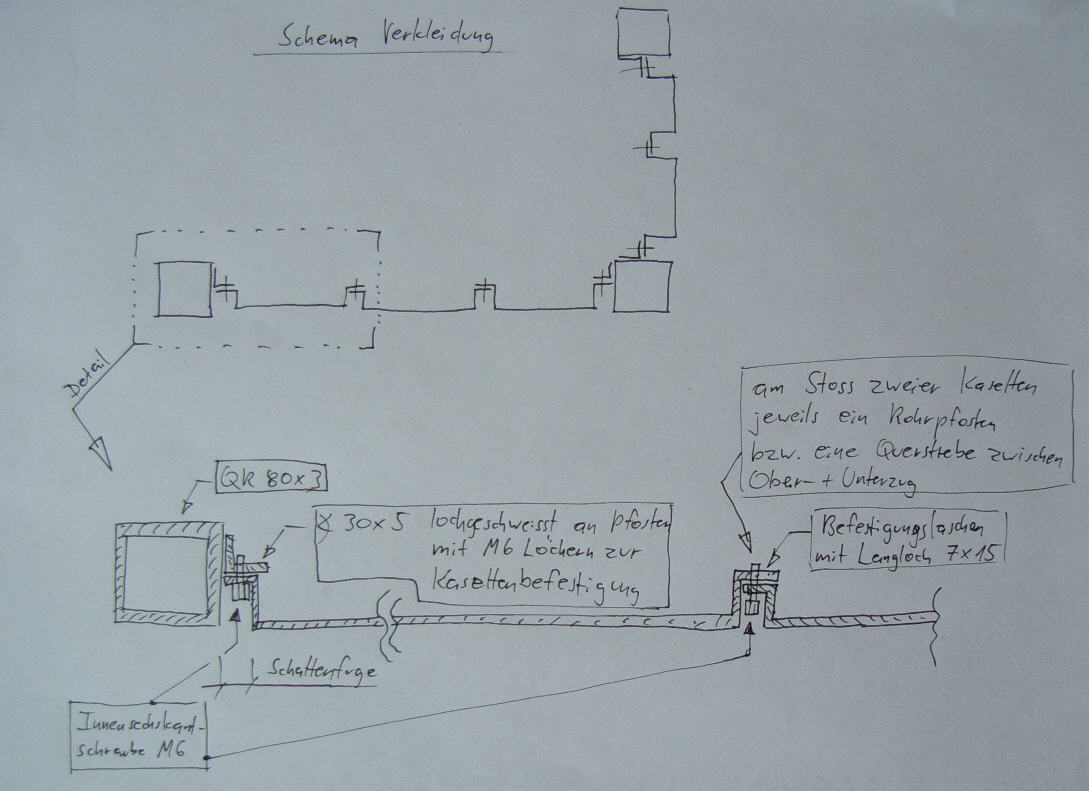 Schema Verkleidung
Detail
am Stoss zweier Kasetten
jeweils ein Rohrpfosten
bzw. eine Querstrebe zwischen
Ober- + Unterzug
QR 80x3
30x5 lochgeschweisst an Pfosten
mit M6 Löchern zur
Kasettenbefestigung
Befestigungslaschen
mit Langloch 7x15
Schattenfuge
Innensechskant-
schraube M6